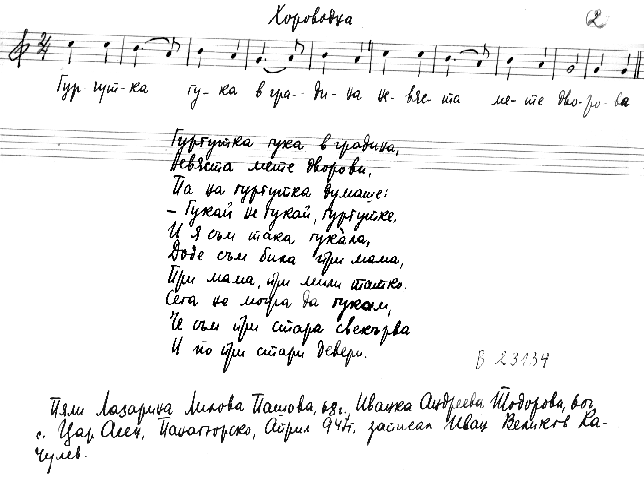 Хороводна
2
Гур-гут-ка гу-ка в гра-ди-на не-вяс-та ме-те дво-ро-ве
Гургутка гука в градина,
Невяста мете дворови,
Па на гургутка думаше:
– Гукай не гукай, гургутке,
И я съм така гукала,
Доде съм била при мама,
При мама, при мили татко.
Сега не мога да гукам,
Че съм при стара свекърва
И ю при стари девери.
В 23134
Пяли Лазарина Лилова Пашова, 68г., Иванка Андреева Тодорова,
с. Цар Асен, Панагюрско, Април 947г. записал Иван Великов Ка-
чулев.